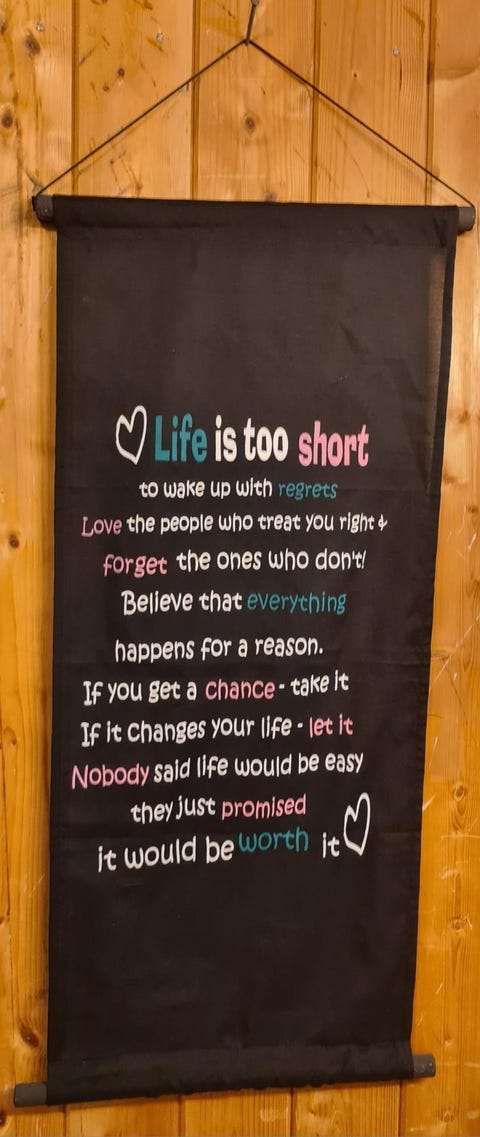 Life is too short
to wake up with regrets
Love the people who treat you right &
forget the ones who don't!
Believe that everything
happens for a reason.
If you get a chance - take it
If it changes your life - let it
Nobody said life would be easy
they just promised
it would be worth it